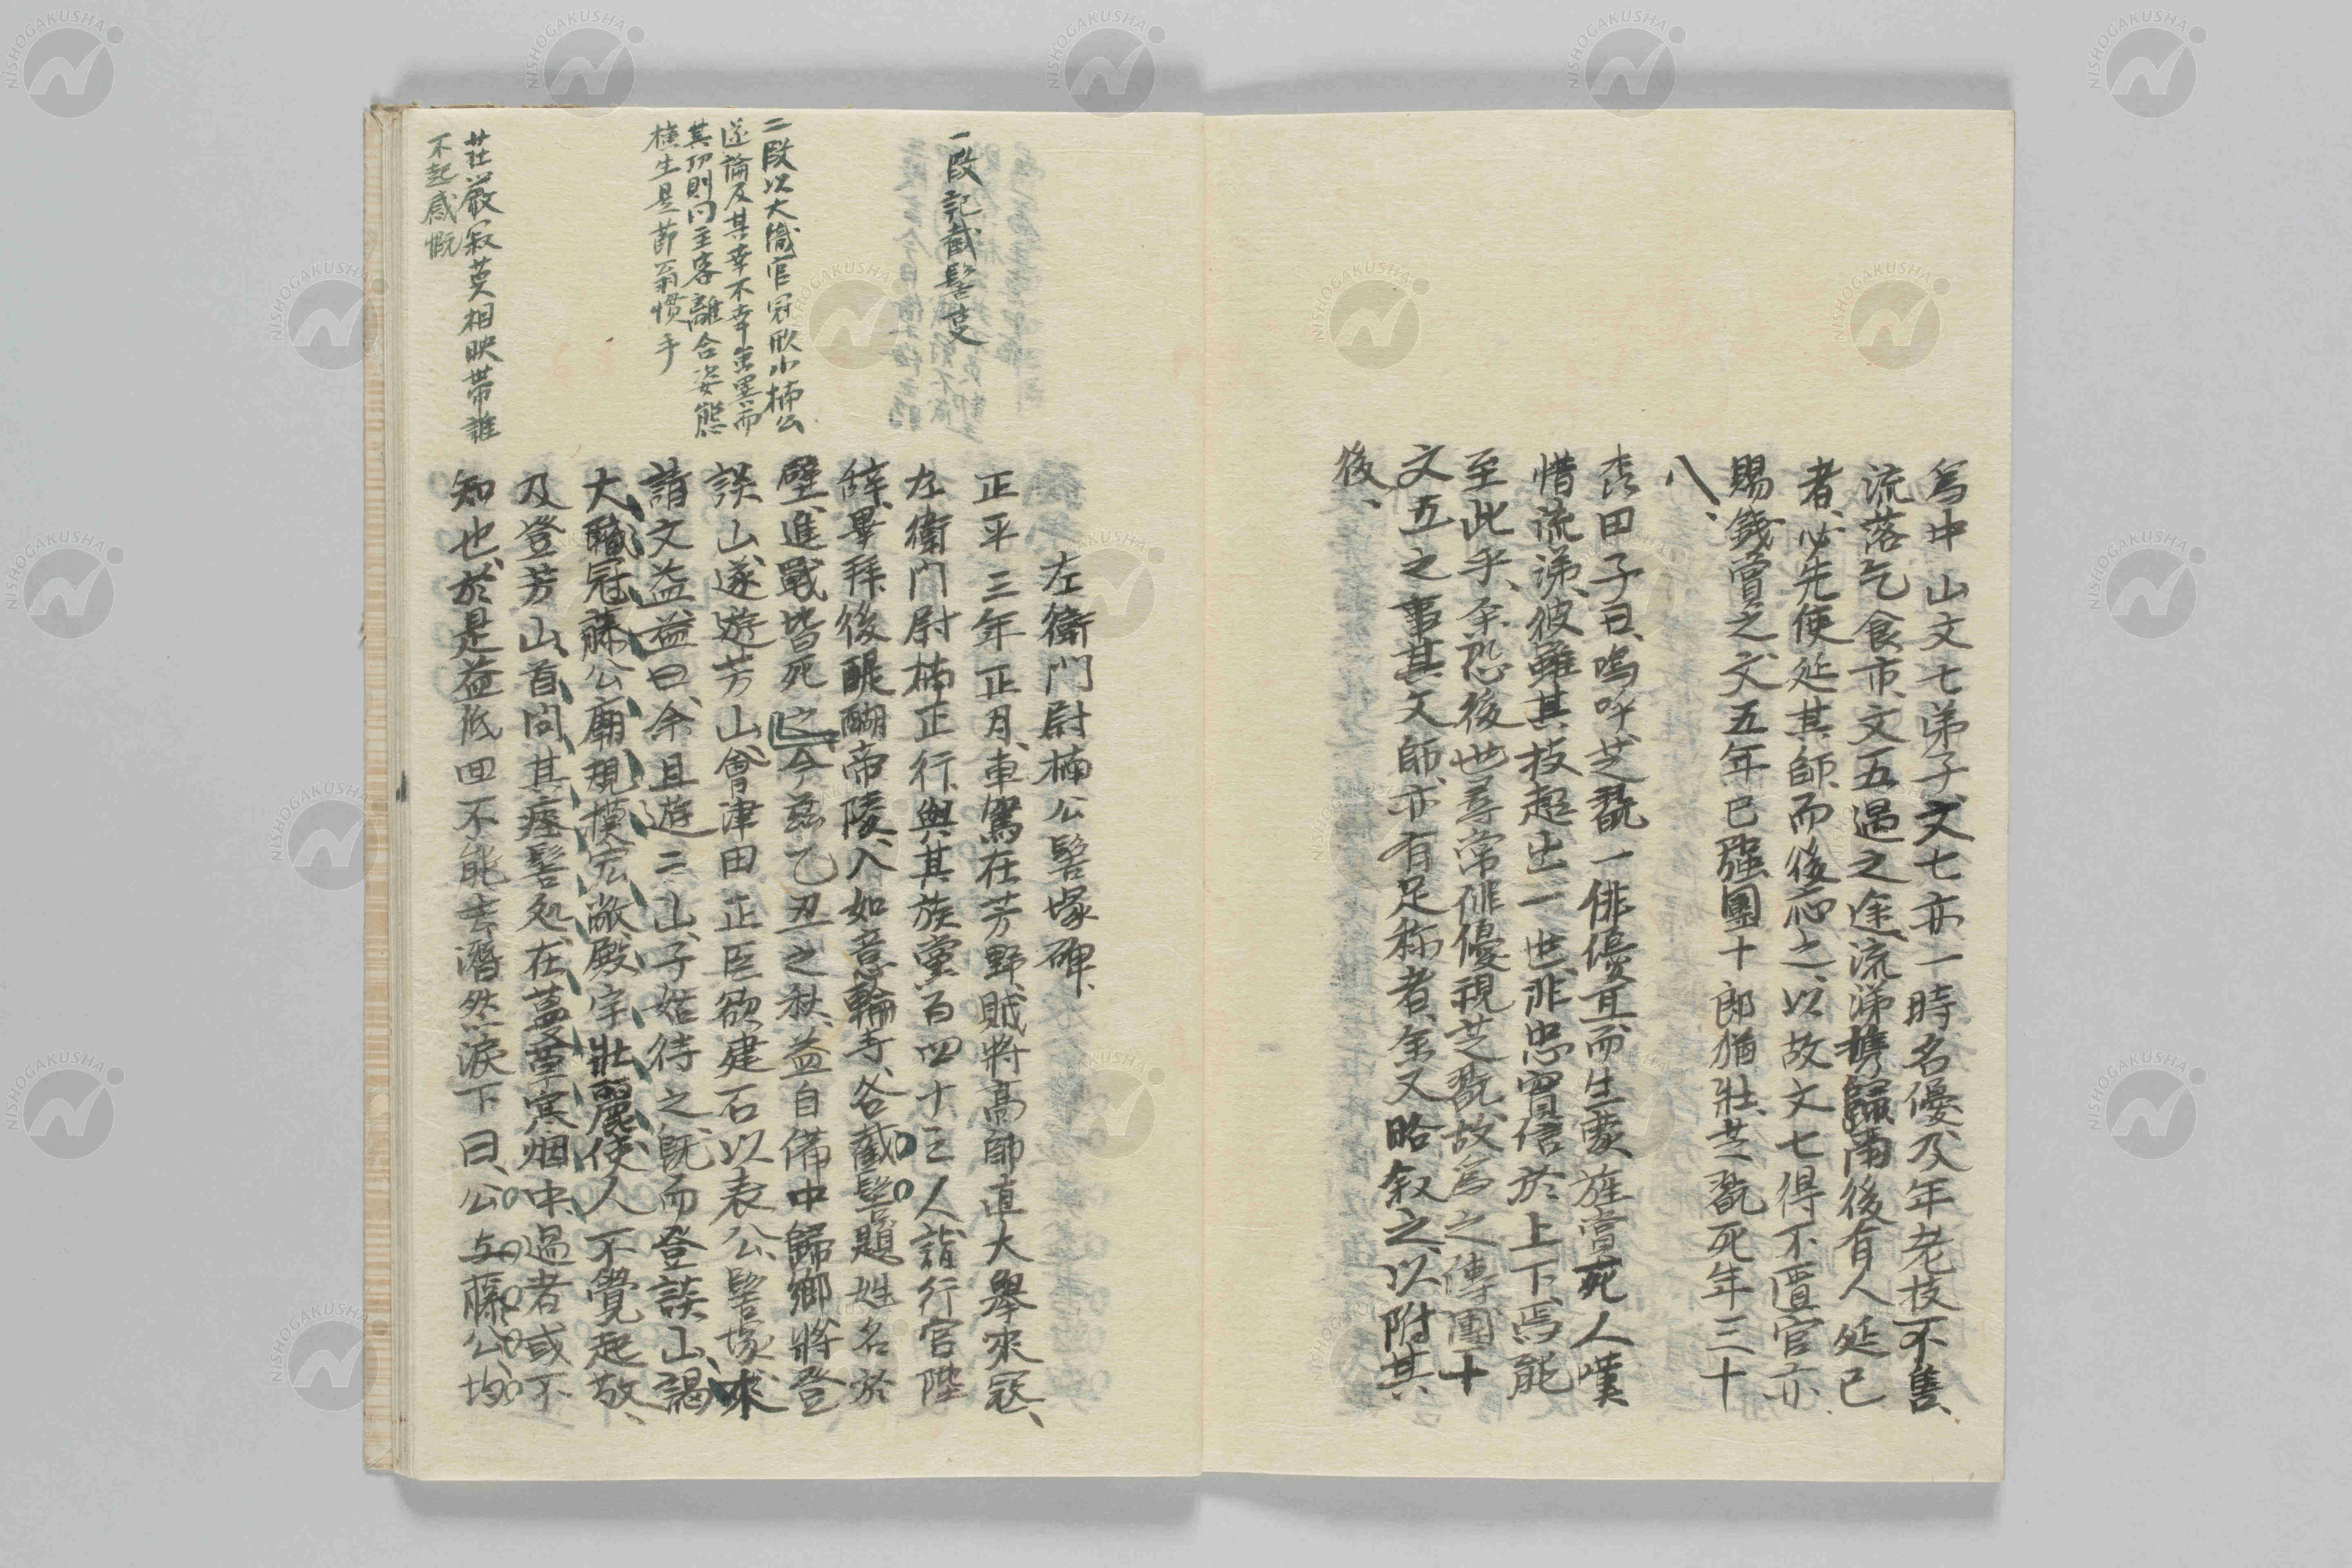 為中山文七弟子、文七亦一時名優、及年老技不售、
流落乞食市、文五遇之途、流涕携歸、甫後有人延已
者、必先使延其師、而後心之、以故文七得不匱、官亦
賜錢賞之、文五年已強、團十郎猶壯、芝翫死年三十
八、
杏田子曰、嗚呼、芝翫一俳優耳、而生蒙旌賞、死人嘆
惜流涕、彼雖其技超出一世、非忠實信於上下、焉能
至此乎、余恐後世尋常俳優視芝翫、故為之傳、團十
文五之事其文師、亦有足称者、余又略叙之、以附其
後、
左衛門尉楠公髻塚碑、
正平三年正月、車駕在芳野、賊將高師直大舉來寇、
左衛門尉楠正行、與其族黨百四十三人詣行宮陛
辞、畢拜後醍醐帝陵、入如意輪寺、各截髻題姓名於
壁、進戰皆死之、今茲乙丑之秋、益自備中歸鄉、將登
談山、遂遊芳山、會津田正臣欲建石以表公髻塚、求
請文益、益曰、余且遊二山、子姑待之、既而登談山、謁
大職冠藤公廟、規模宏敞、殿宇壯麗、使人不覺起敬、
及登芳山、首問其瘞髻処、在蔓草寒烟中、過者或不
知也、於是益低回不能去、潸然淚下曰、公与藤公均
一段記截髻支
二段以大織官冠形小楠公
遂論及其幸不幸
其功則同主客離合姿態
橫生是節翁慣手
莊嚴寂莫相映帶誰
不起感慨